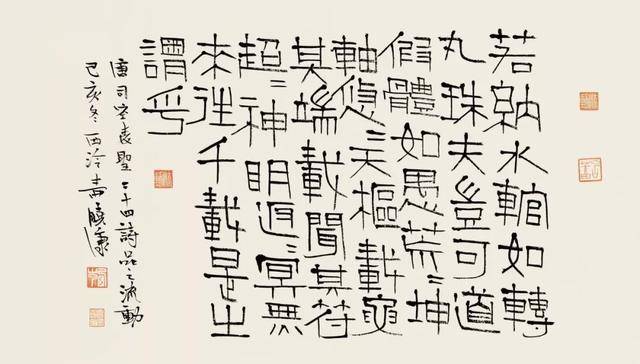 若納水輨如轉
丸珠夫豈可道
假體如愚荒〻坤
軸悠〻天樞載要
其端載聞其符
超〻神明返〻冥無
來往千載是之
謂乎
唐司空表聖二十四詩品之流動
己亥冬西泠